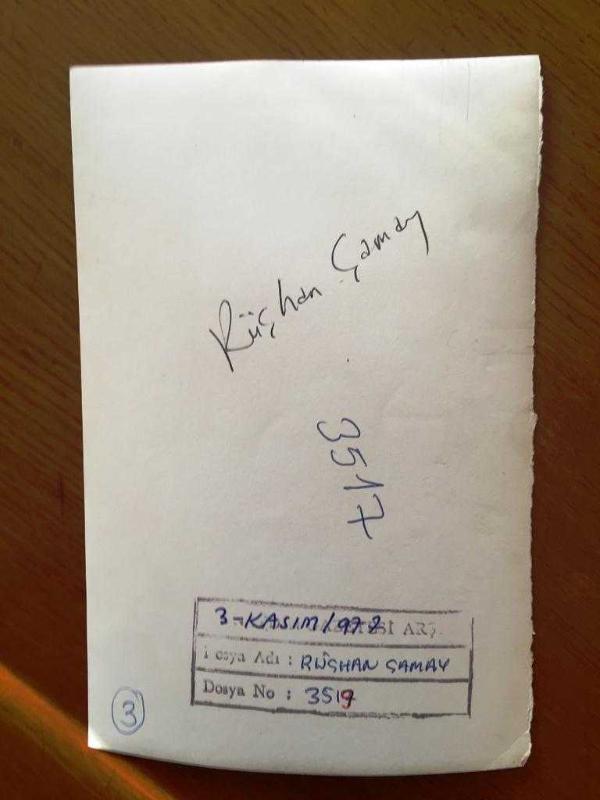 Rüşhan Çamay
3517
3-KASIM/1972 Sİ ARŞ.
Dosya Adı : RÜŞHAN ÇAMAY
Dosya No : 3519
3